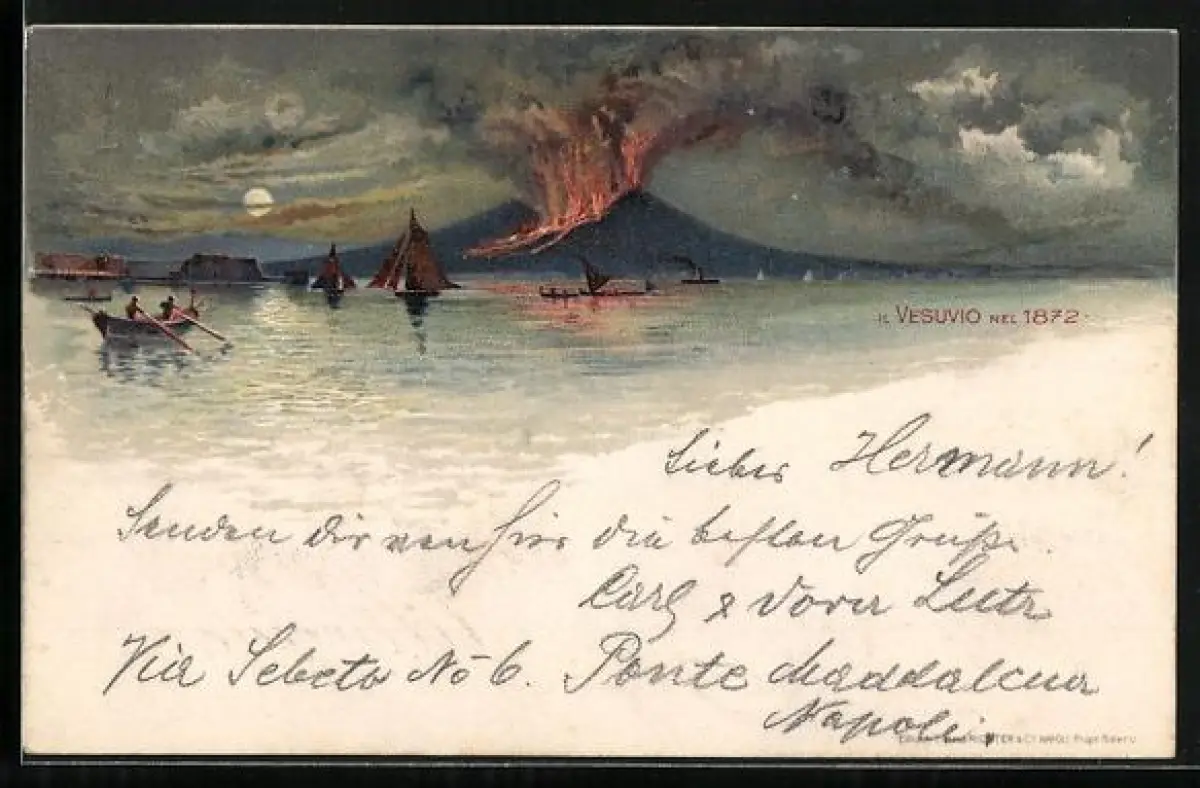 IL VESUVIO NEL 1872
Lieber Hermann!
Senden Dir von hier die besten Grüße.
Carl & Dora Lutz
Via Sebeto No 6. Ponte Maddalena
Napoli.
RICHTER & Co NAPOLI